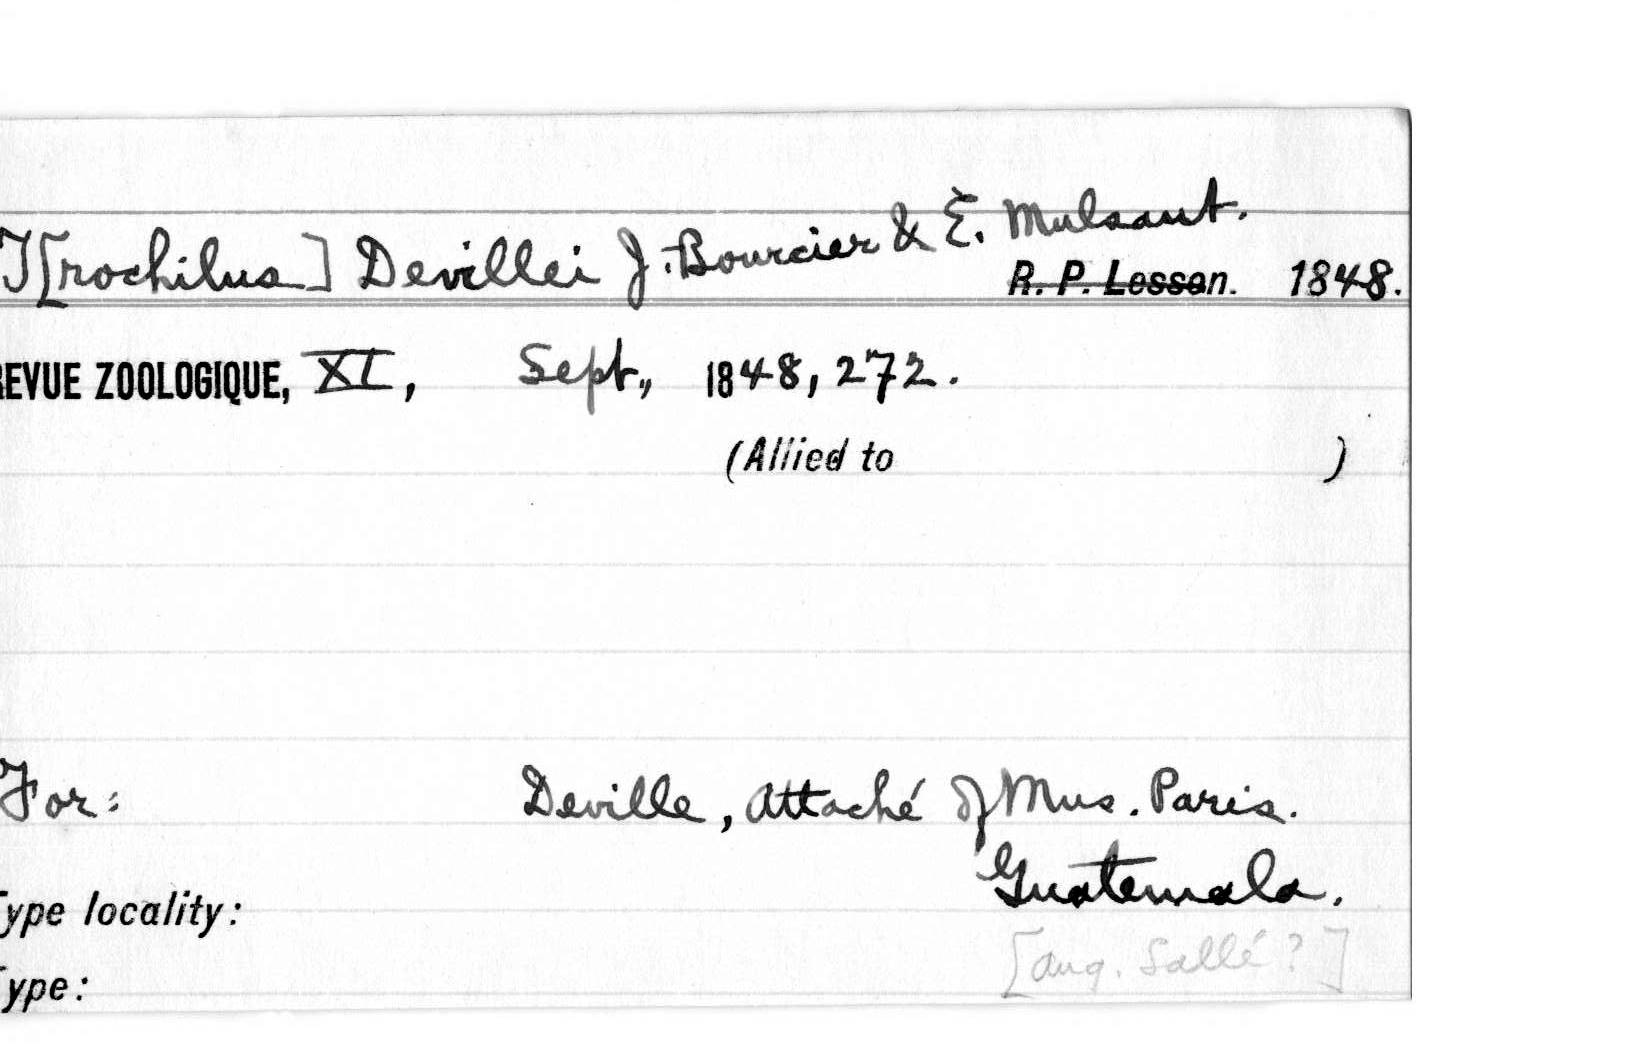 T[rochilus] Devillei J. Bourcier & E. Mulsant.
R. P. Lesson. 1848.
REVUE ZOOLOGIQUE, XI, Sept., 1848, 272.
(Allied to )
For: Deville, Attaché of Mus. Paris.
Guatemala.
Type locality:
[Aug. Sallé?]
Type: